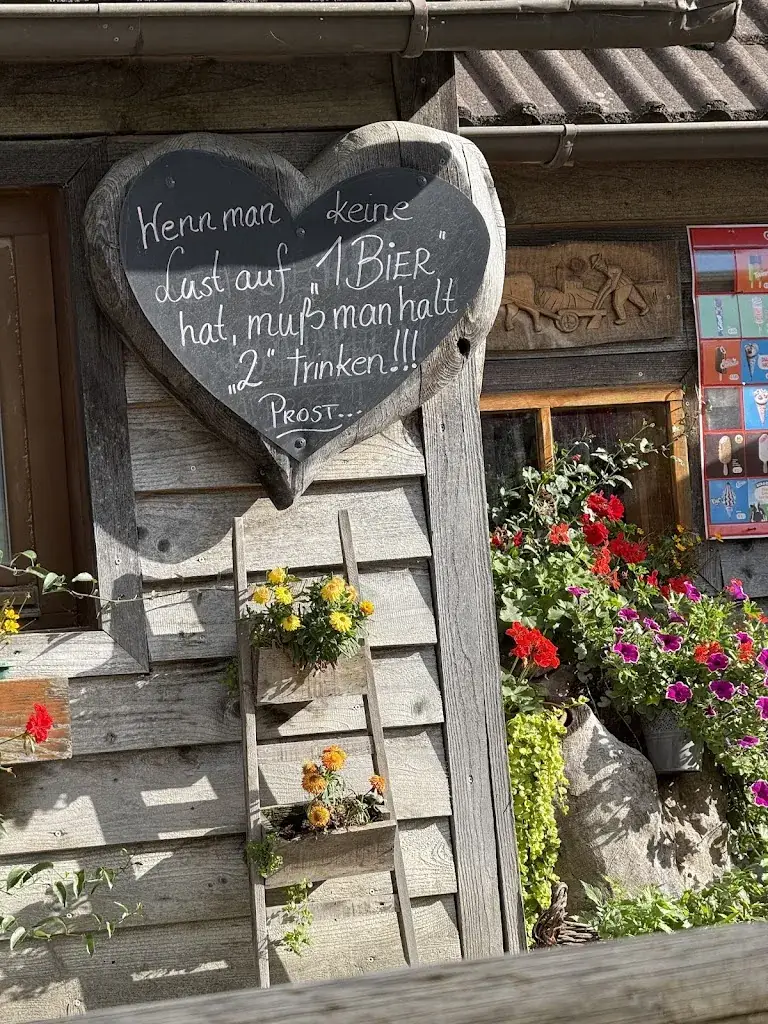 Wenn man keine
Lust auf "1 BiER"
hat, muß man halt
„2“ trinken!!!
PROST...